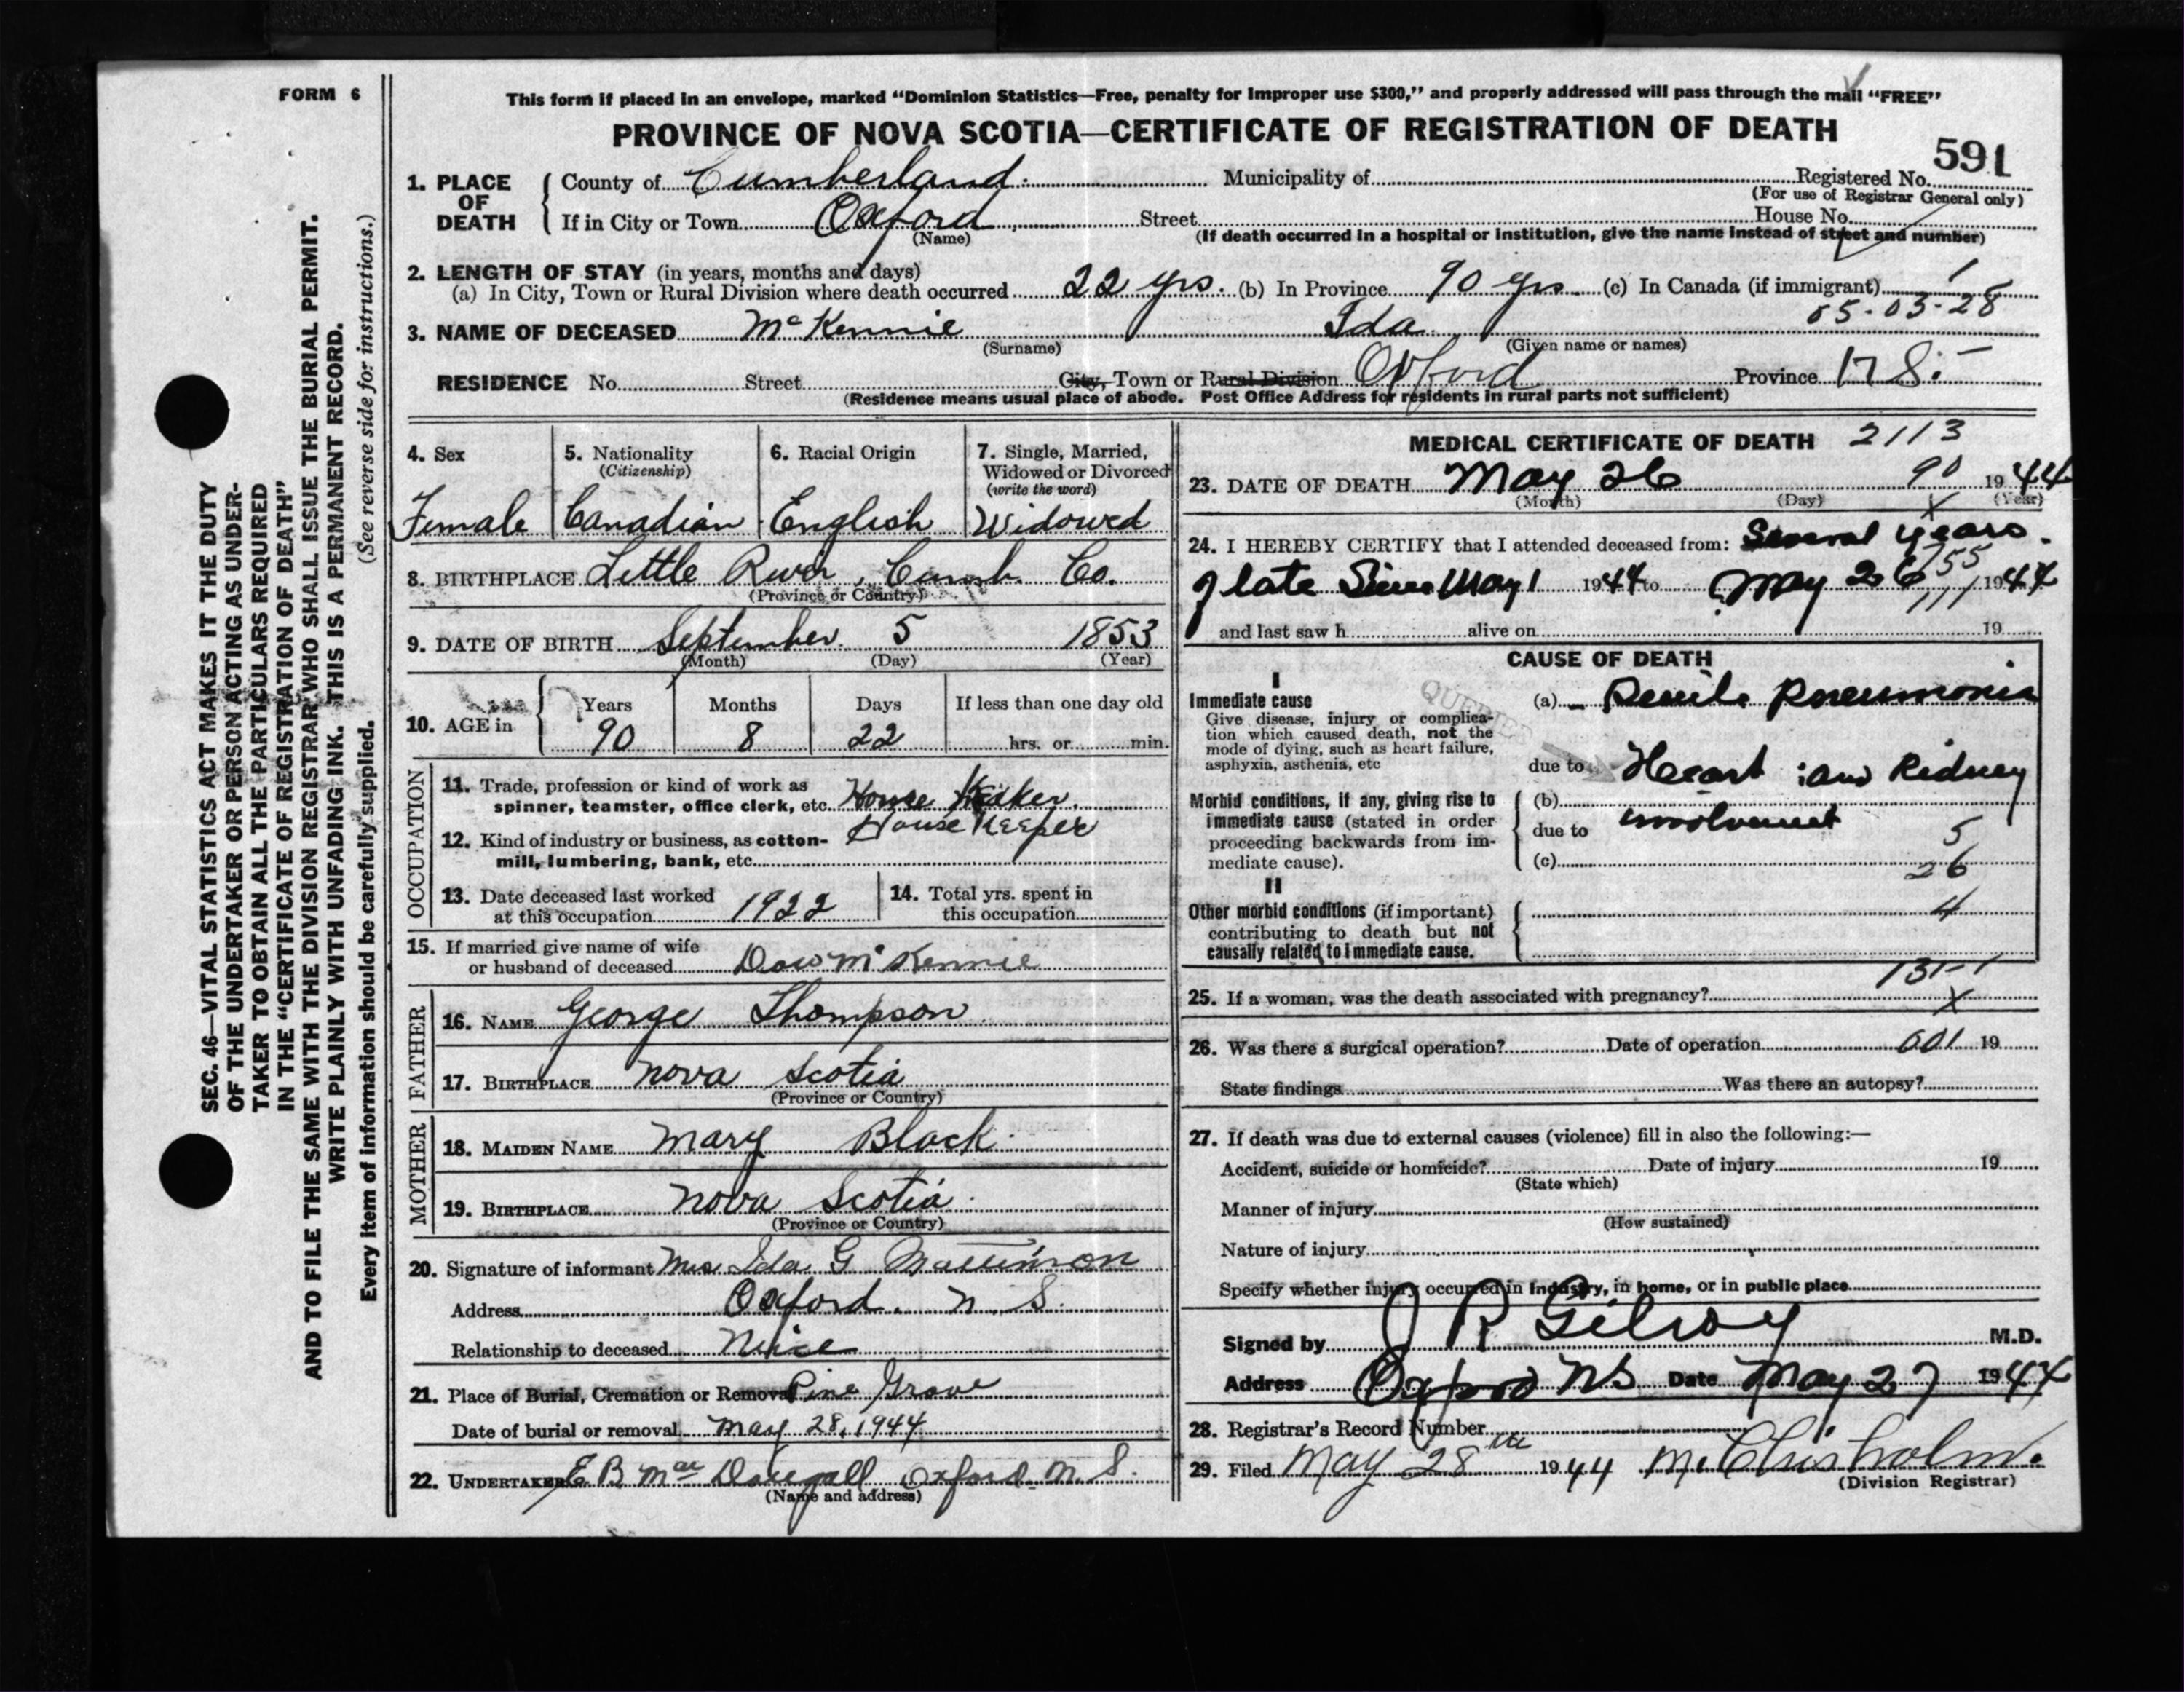 FORM 6
This form if placed in an envelope, marked “Dominion Statistics—Free, penalty for improper use $300,” and properly addressed will pass through the mail “FREE”
PROVINCE OF NOVA SCOTIA—CERTIFICATE OF REGISTRATION OF DEATH
591
1. PLACE OF DEATH County of Cumberland Municipality of Registered No.
(For use of Registrar General only)
If in City or Town Oxford Street House No.
(Name) (If death occurred in a hospital or institution, give the name instead of street and number)
2. LENGTH OF STAY (in years, months and days)
(a) In City, Town or Rural Division where death occurred 22 yrs. (b) In Province 90 yrs (c) In Canada (if immigrant)
85-03-28
3. NAME OF DECEASED McKennie Ida
(Surname) (Given name or names)
RESIDENCE No. Street City, Town or Rural Division Oxford Province N S.
(Residence means usual place of abode. Post Office Address for residents in rural parts not sufficient)
4. Sex 5. Nationality (Citizenship) 6. Racial Origin 7. Single, Married, Widowed or Divorced (write the word)
Female Canadian English Widowed
8. BIRTHPLACE Little River, Cumb. Co.
(Province or Country)
9. DATE OF BIRTH September 5 1853
(Month) (Day) (Year)
10. AGE in Years Months Days If less than one day old
90 8 22 hrs. or min.
OCCUPATION
11. Trade, profession or kind of work as
spinner, teamster, office clerk, etc. House Keeker
12. Kind of industry or business, as cotton- House Keeper
mill, lumbering, bank, etc.
13. Date deceased last worked
at this occupation 1922
14. Total yrs. spent in
this occupation
15. If married give name of wife
or husband of deceased Dow McKennie
FATHER
16. NAME George Thompson
17. BIRTHPLACE Nova Scotia
(Province or Country)
MOTHER
18. MAIDEN NAME Mary Black
19. BIRTHPLACE Nova Scotia
(Province or Country)
20. Signature of informant Mrs Ida G Mattinson
Address Oxford. N. S.
Relationship to deceased Neice
21. Place of Burial, Cremation or Removal Pine Grove
Date of burial or removal May 28, 1944
22. UNDERTAKER E B MacDougall Oxford N. S.
(Name and address)
MEDICAL CERTIFICATE OF DEATH 2113
90
23. DATE OF DEATH May 26 1944
(Month) (Day) (Year)
X
24. I HEREBY CERTIFY that I attended deceased from: Several years.
755
of late Since May 1 1944 to May 26 1944
111
and last saw h alive on 19
CAUSE OF DEATH
I
Immediate cause
Give disease, injury or complica-
tion which caused death, not the
mode of dying, such as heart failure,
asphyxia, asthenia, etc
QUERIED
(a) Senile Pneumonia
due to Heart and Kidney
Morbid conditions, if any, giving rise to
immediate cause (stated in order
proceeding backwards from im-
mediate cause).
(b)
due to involvement
5
(c)
26
II
Other morbid conditions (if important)
contributing to death but not
causally related to immediate cause.
4
131-1
25. If a woman, was the death associated with pregnancy?
X
26. Was there a surgical operation? Date of operation 601 19
State findings Was there an autopsy?
27. If death was due to external causes (violence) fill in also the following:—
Accident, suicide or homicide? Date of injury 19
(State which)
Manner of injury
(How sustained)
Nature of injury
Specify whether injury occurred in industry, in home, or in public place
Signed by J R Gilroy M.D.
Address Oxford NS Date May 27 1944
28. Registrar's Record Number
29. Filed May 28th 1944 M. Chisholm.
(Division Registrar)
SEC. 46—VITAL STATISTICS ACT MAKES IT THE DUTY
OF THE UNDERTAKER OR PERSON ACTING AS UNDER-
TAKER TO OBTAIN ALL THE PARTICULARS REQUIRED
IN THE “CERTIFICATE OF REGISTRATION OF DEATH”
AND TO FILE THE SAME WITH THE DIVISION REGISTRAR WHO SHALL ISSUE THE BURIAL PERMIT.
WRITE PLAINLY WITH UNFADING INK. THIS IS A PERMANENT RECORD.
Every item of information should be carefully supplied. (See reverse side for instructions.)